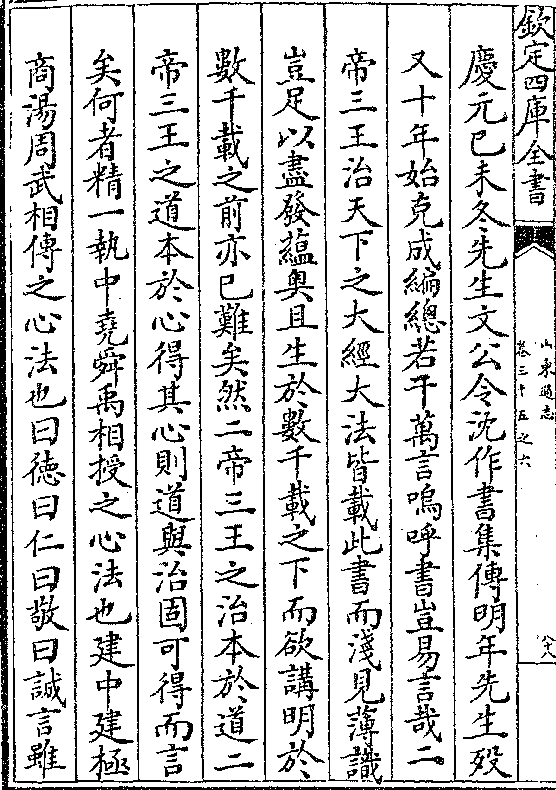 欽定四庫全書
山東通志
卷三十五之六
慶元已未冬先生文公令沈作書集傳明年先生殁
又十年始克成編總若干萬言嗚呼書豈易言哉二
帝三王治天下之大經大法皆載此書而淺見薄識
豈足以盡發藴奥且生於數千載之下而欲講明於
數千載之前亦已難矣然二帝三王之治本於道二
帝三王之道本於心得其心則道與治固可得而言
矣何者精一執中堯舜禹相授之心法也建中建極
商湯周武相傳之心法也曰德曰仁曰敬曰誠言雖